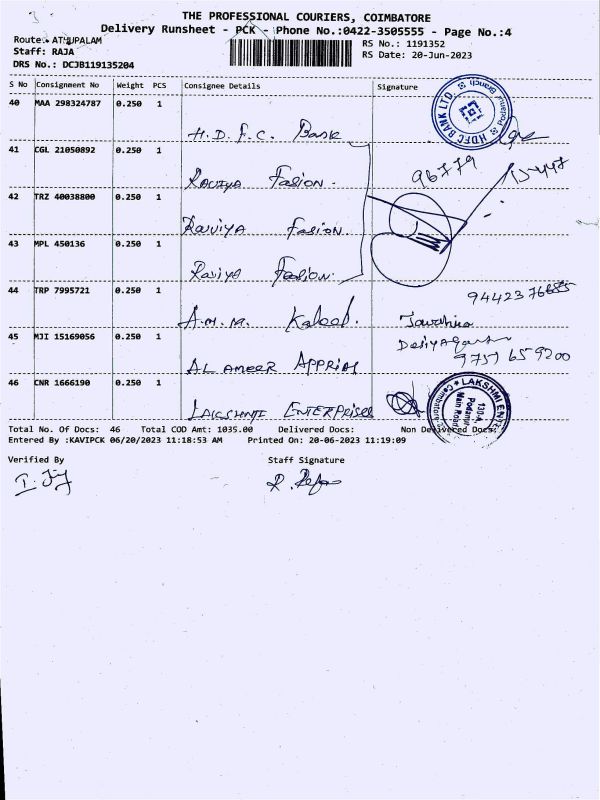 THE PROFESSIONAL COURIERS, COIMBATORE
Delivery Runsheet - PCK - Phone No.:0422-3505555 - Page No.:4
Route: ATHUPALAM
RS No.: 1191352
Staff: RAJA
RS Date: 20-Jun-2023
DRS No.: DCJB119135204
S No Consignment No Weight PCS Consignee Details Signature
40 MAA 298324787 0.250 1 H.D.F.C. Bank
HDFC BANK LTD Podanur Branch
41 CGL 21050892 0.250 1 Raviya Fasion. 96779 15447
42 TRZ 40038800 0.250 1 Raviya Fasion.
43 MPL 450136 0.250 1 Raviya Fasion.
44 TRP 7995721 0.250 1 A.M.M. Kaleel.
45 MJI 15169056 0.250 1 AL AMEER APPRIAS 9757 659200
46 CNR 1666190 0.250 1 LAKSHMI ENTERPRISES
LAKSHMI ENTE
130-A,
Podanur
Main Road
Coimbatore
Total No. Of Docs: 46 Total COD Amt: 1035.00 Delivered Docs: Non Delivered Docs:
Entered By :KAVIPCK 06/20/2023 11:18:53 AM Printed On: 20-06-2023 11:19:09
Verified By Staff Signature